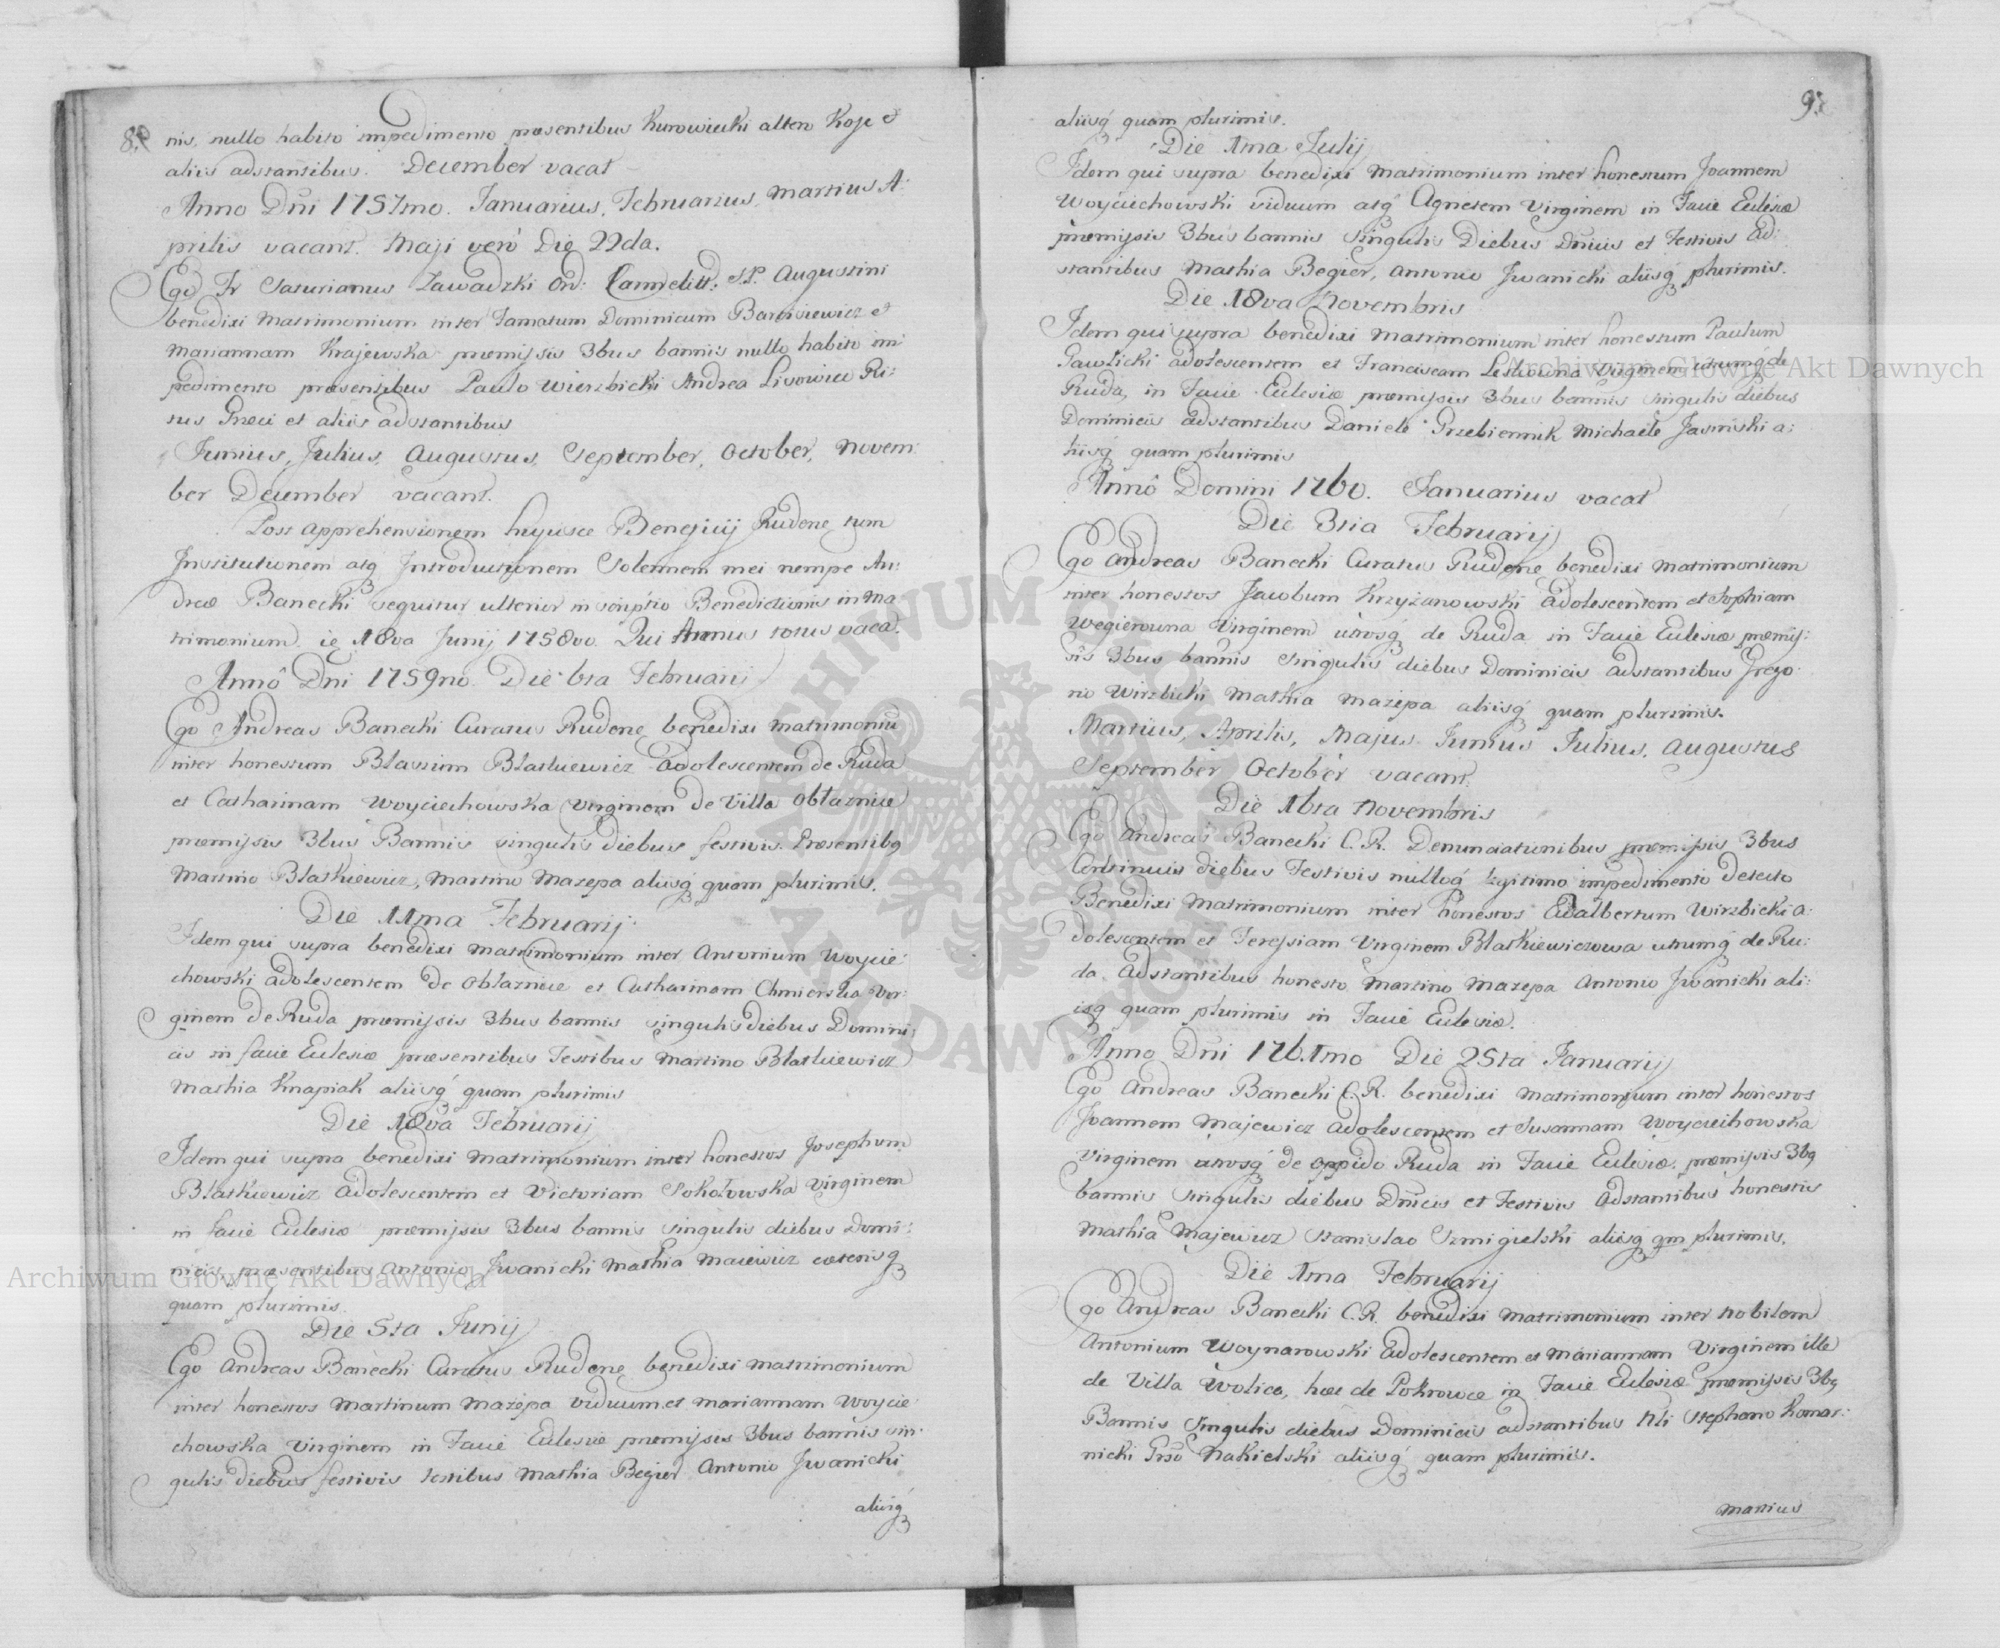 8.
nis, nullo habito impedimento præsentibus Kurowiecki altero Koje et
aliis adstantibus. December vacat
Anno Dñi 1757mo. Januarius, Februarius, Martius A:
prilis vacant. Maji verò Die 22da.
Ego Fr Saturianus Zawadzki Ord: Carmelitt: S.P. Augustini
benedixi Matrimonium inter Famatum Dominicum Bartosiewicz et
Mariannam Krajewska præmissis 3bus bannis nullo habito im:
pedimento præsentibus Paulo Wierzbicki Andrea Lisowiec Ri:
tus Græci et aliis adstantibus
Junius, Julius, Augustus, September, October, Novem
ber December vacant.
Post apprehensionem hujusce Beneficij Rudenę tum
Institutionem atq Introductionem Solennem mei nempe An:
dreæ Banecki sequitur ulterior inscriptio Benedictionis in Ma
trimonium ię 18va Junij 1758vo. Qui Annus totus vaca.
Annô Dñi 1759no. Die 6ta Februarij
Ego Andreas Banecki Curatus Rudenę benedixi matrimoniũ
inter honestum Blasium Blatkiewicz adolescentem de Ruda
et Catharinam Woyciechowska Virginem de Villa Obłaznice
præmissis 3bus Bannis singulis diebus festivis. Præsentibq
Martino Blatkiewicz, Martino Mazepa aliisq quam plurimis.
Die 11ma Februarij
Idem qui supra benedixi matrimonium inter Antonium Woycie:
chowski adolescentem de Obłaznice et Catharinam Chmierska Vir:
ginem de Ruda præmissis 3bus bannis singulis diebus Domini
cis in facie Eclesiæ præsentibus Testibus Martino Blatkiewicz
Mathia Knapiak aliisq quam plurimis
Die 18va Februarij
Idem qui supra benedixi Matrimonium inter honestos Josephum
Blatkiewicz Adolescentem et Victoriam Sokołowska Virginem
in facie Eclesiæ præmissis 3bus bannis singulis diebus Domi:
nicis, præsentibus Antonio Iwanicki Mathia Maiewicz cæterisq
quam plurimis.
Die 5ta Junij
Ego Andreas Banecki Curatus Rudenę benedixi matrimonium
inter honestos Martinum Mazepa Viduum et Mariannam Woycie
chowska Virginem in Facie Eclesiæ præmissis 3bus bannis sin:
gulis diebus festivis testibus Mathia Begier Antonio Iwanicki
aliisq
9.
aliisq quam plurimis.
Die 1ma Julij
Idem qui supra benedixi Matrimonium inter honestum Joannem
Woyciechowski viduum atq Agnetem Virginem in Facie Eclesiæ
præmissis 3bus bannis singulis Diebus Dñicis et Festivis Ad:
stantibus Mathia Begier, Antonio Iwanicki aliisq plurimis.
Die 18va Novembris
Idem qui supra benedixi matrimonium inter honestum Paulum
Pawlicki adolescentem et Franciscam Leskowna Virginem utrumq de
Ruda, in Facie Eclesiæ præmissis 3bus bannis singulis diebus
Dominicis adstantibus Daniele Grzebiennik Michaele Jasiński a:
liisq quam plurimis
Annô Domini 1760. Januarius vacat
Die 3tia Februarij
Ego Andreas Banecki Curatus Rudenę benedixi Matrimonium
inter honestos Jacobum Krzyżanowski Adolescentem et Sophiam
Wegierowna Virginem utrosq de Ruda in Facie Eclesiæ præmis:
sis 3bus bannis singulis diebus Dominicis adstantibus Grego
rio Wirzbicki Mathia Mazepa aliisq quam plurimis.
Martius, Aprilis, Majus Junius Julius, Augustus
September October vacant.
Die 16ta Novembris
Ego Andreas Banecki C.R. Denunciationibus præmissis 3bus
Continuis diebus Festivis nulloq legitimo impedimento detecto
Benedixi Matrimonium inter honestos Adalbertum Wirzbicki a:
dolescentem et Teressiam Virginem Blatkiewiczowa utrumq de Ru:
da. Adstantibus honesto Martino Mazepa Antonio Iwanicki ali:
isq quam plurimis in Facie Eclesiæ.
Anno Dñi 1761mo Die 25ta Januarij
Ego Andreas Banecki C.R. benedixi Matrimonium inter honestos
Joannem Majewicz Adolescentem et Susannam Woyciechowska
Virginem utrosq de Oppido Ruda in Facie Eclesiæ, præmissis 3bq
bannis singulis diebus Dñicis et Festivis Adstantibus honestis
Mathia Majewicz Stanislao Szmigielski aliisq qm plurimis.
Die 1ma Februarij
Ego Andreas Banecki C.R. benedixi matrimonium inter nobilem
Antonium Woynarowski Adolescentem et Mariannam Virginem ille
de Villa Wolica, hæc de Pokrowce in Facie Eclesiæ præmissis 3bq
Bannis singulis diebus Dominicis adstantibus Nli Stephano Komar:
nicki Grso Nakielski aliisq quam plurimis.
Martius
Archiwum Główne Akt Dawnych
Archiwum Główne Akt Dawnych
ARCHIWUM GŁÓWNE AKT DAWNYCH